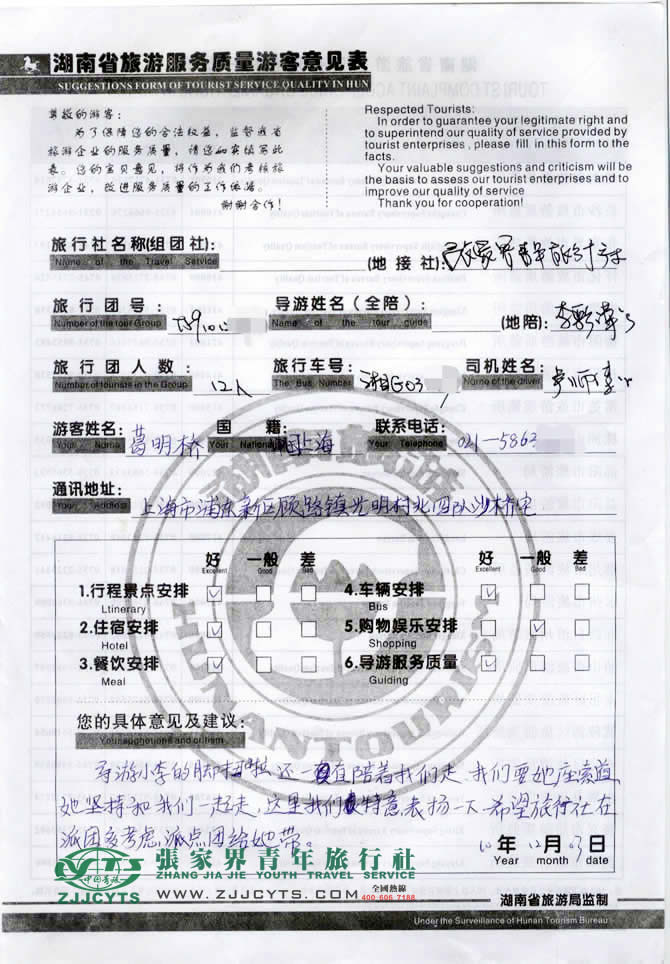 湖南省旅游服务质量游客意见表
SUGGESTIONS FORM OF TOURIST SERVICE QUALITY IN HUN
尊敬的游客：
为了保障您的合法权益，监督我省
旅游企业的服务质量，请您如实填写此
表。您的宝贵意见，将作为我们考核旅
游企业，改进服务质量的工作依据。
谢谢合作！
Respected Tourists:
In order to guarantee your legitimate right and
to superintend our quality of service provided by
tourist enterprises , please fill in this form to the
facts.
Your valuable suggestions and criticism will be
the basis to assess our tourist enterprises and to
improve our quality of service
Thank you for cooperation!
旅行社名称(组团社): (地接社): 张家界青年旅行社
Name of the Travel Service
旅行团号： 导游姓名（全陪）： (地陪):
Number of the tour Group Name of the tour guide
旅行团人数： 12人 旅行车号： 湘G03 司机姓名：
Number of tourists in the Group The Bus Number Name of the driver
游客姓名: 葛明桥 国籍: 上海 联系电话: 021-5863
Your Name Your Nationality Your Telephone
通讯地址: 上海市浦东新区顾路镇光明村北四队沙桥宅
Your Address
好 一般 差 好 一般 差
Excellent Good Bad Excellent Good Bad
1.行程景点安排 4.车辆安排
Ltinerary Bus
2.住宿安排 5.购物娱乐安排
Hotel Shopping
3.餐饮安排 6.导游服务质量
Meal Guiding
HUNAN TOURISM
您的具体意见及建议:
导游小李的脚 还一直陪着我们走，我们要她座索道
她坚持和我们一起走，这里我们特意表扬一下。希望旅行社在
派团多考虑，派点团给她带。
10年12月03日
Year month date
中国青旅
ZJJCYTS
張家界青年旅行社
ZHANG JIA JIE YOUTH TRAVEL SERVICE
WWW.ZJJCYTS.COM 全國熱線
400 606 7188
湖南省旅游局监制
Under the Surveillance of Hunan Tourism Bureau